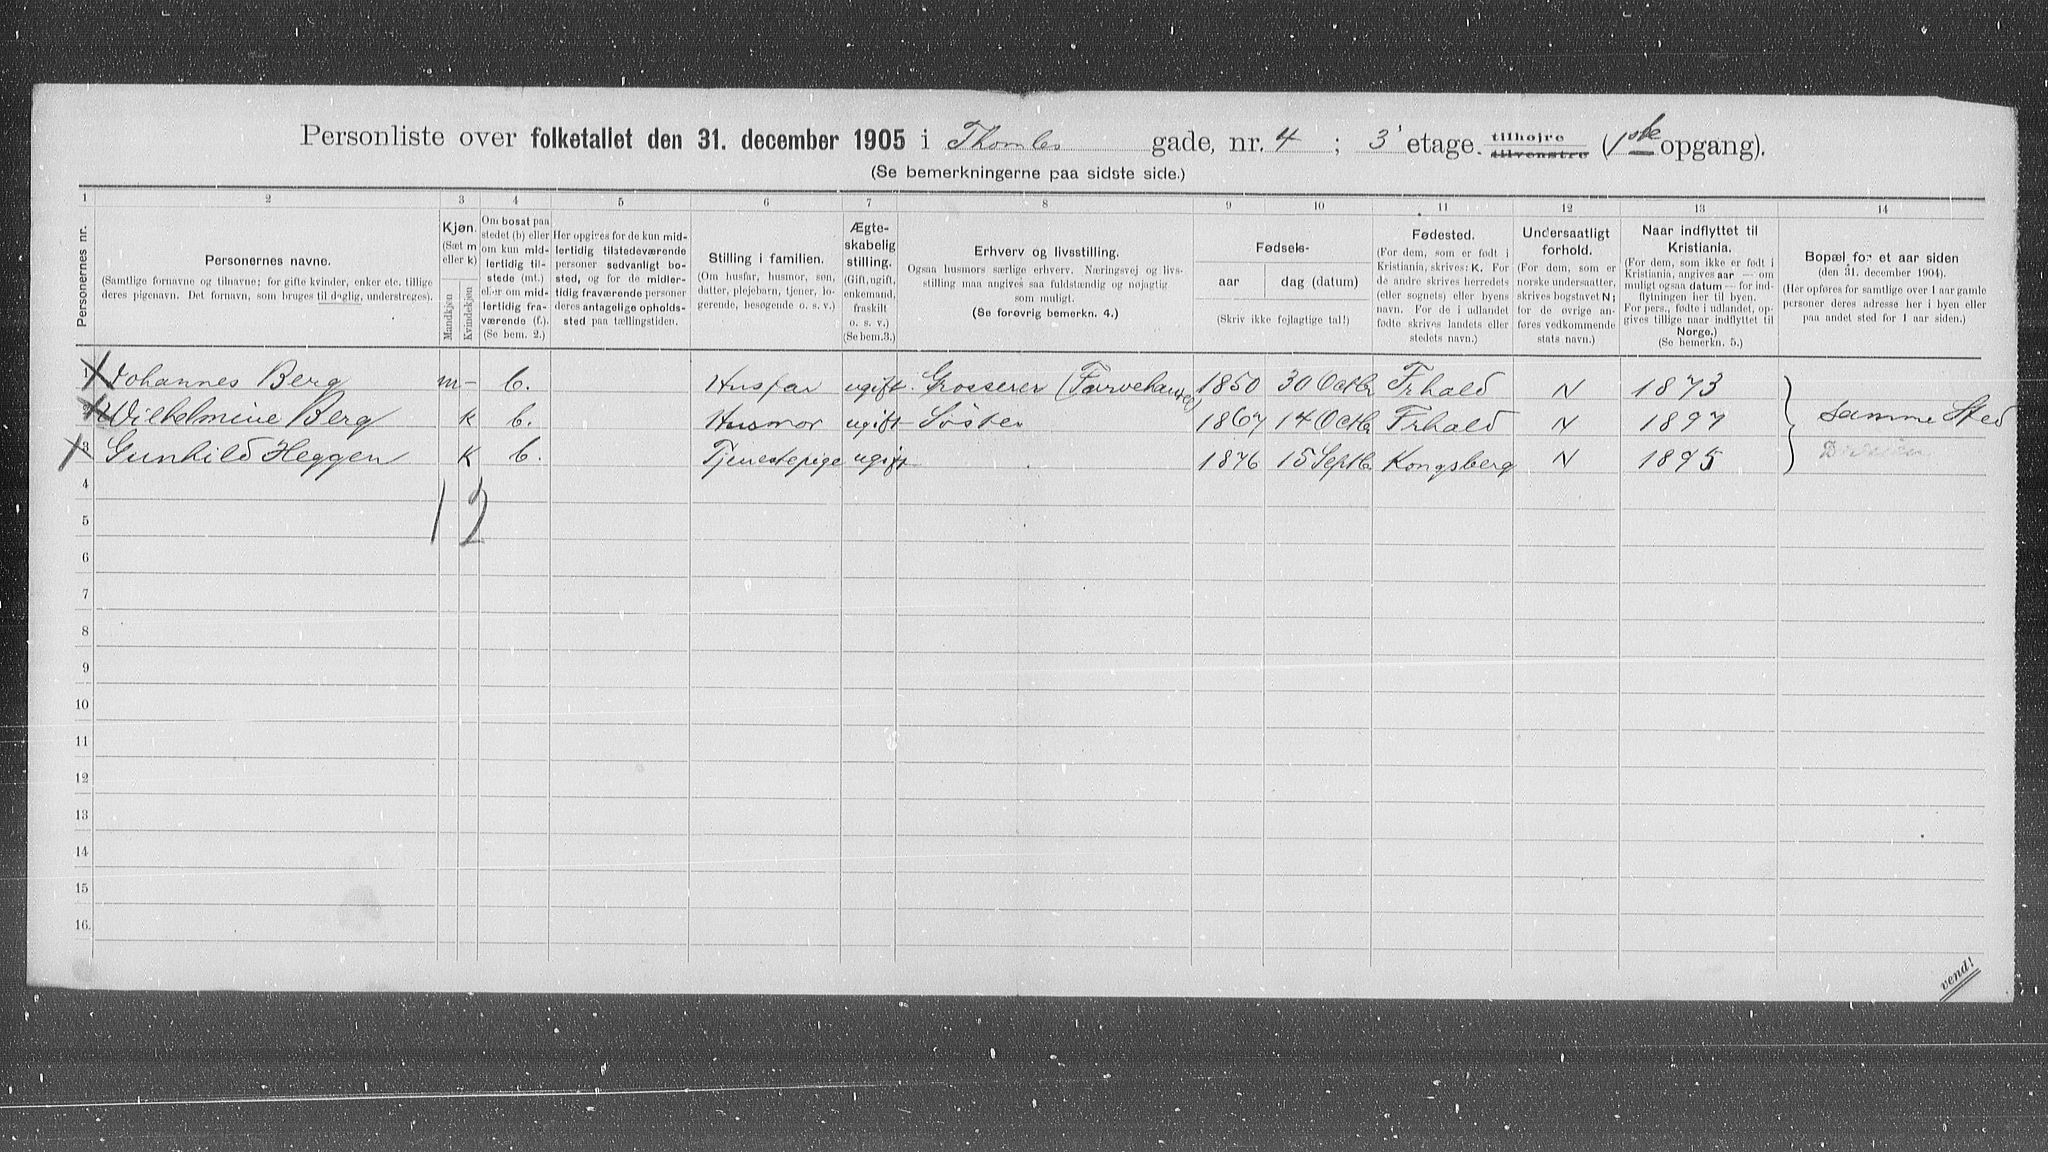 Personliste over folketallet den 31. december 1905 i Thomles gade, nr. 4 ; 3' etage. tilhøjre tilvenstre (1ste opgang).
(Se bemerkningerne paa sidste side.)
1 2 3 4 5 6 7 8 9 10 11 12 13 14
Personernes nr.
Personernes navne.
(Samtlige fornavne og tilnavne; for gifte kvinder, enker etc. tillige
deres pigenavn. Det fornavn, som bruges til daglig, understreges).
Kjøn.
(Sæt m
eller k)
Mandkjøn
Kvindekjøn
Om bosat paa
stedet (b) eller
om kun mid-
lertidig til-
stede (mt.)
eller om mid-
lertidig fra-
værende (f.).
(Se bem. 2.)
Her opgives for de kun mid-
lertidig tilstedeværende
personer sedvanligt bo-
sted, og for de midler-
tidig fraværende personer
deres antagelige opholds-
sted paa tællingstiden.
Stilling i familien.
(Om husfar, husmor, søn,
datter, plejebarn, tjener, lo-
gerende, besøgende o. s. v.)
Ægte-
skabelig
stilling.
(Gift, ugift,
enkemand,
fraskilt
o. s. v.)
(Se bem.3.)
Erhverv og livsstilling.
Ogsaa husmors særlige erhverv. Næringsvej og livs-
stilling maa angives saa fuldstændig og nøjagtig
som muligt.
(Se forøvrig bemerkn. 4.)
Fødsels-
aar dag (datum)
(Skriv ikke fejlagtige tal!)
Fødested.
(For dem, som er født i
Kristiania, skrives: K. For
de andre skrives herredets
(eller sognets) eller byens
navn. For de i udlandet
fødte skrives landets eller
stedets navn.)
Undersaatligt
forhold.
(For dem, som er
norske undersaatter,
skrives bogstavet N;
for de øvrige an-
føres vedkommende
stats navn.)
Naar indflyttet til
Kristiania.
(For dem, som ikke er født i
Kristiania, angives aar — om
muligt ogsaa datum — for ind-
flytningen her til byen.
For pers., fødte i udlandet, op-
gives tillige naar indflyttet til
Norge.)
(Se bemerkn. 5.)
Bopæl for et aar siden
(den 31. december 1904).
(Her opføres for samtlige over 1 aar gamle
personer deres adresse her i byen eller
paa andet sted for 1 aar siden.)
1 Johannes Berg m- b. Husfar ugift. Grosserer (Farvehandel) 1850 30 Octb Frhald N 1873
2 Wilhelmine Berg k b. Husmor ugift Søster 1867 14 Octb Frhald N 1897 Samme Sted
3 Gunhild Heggen K b. Tjenestepige ugift 1876 15 Septb Kongsberg N 1895
4
1 2
5
6
7
8
9
10
11
12
13
14
15
16.
vend!